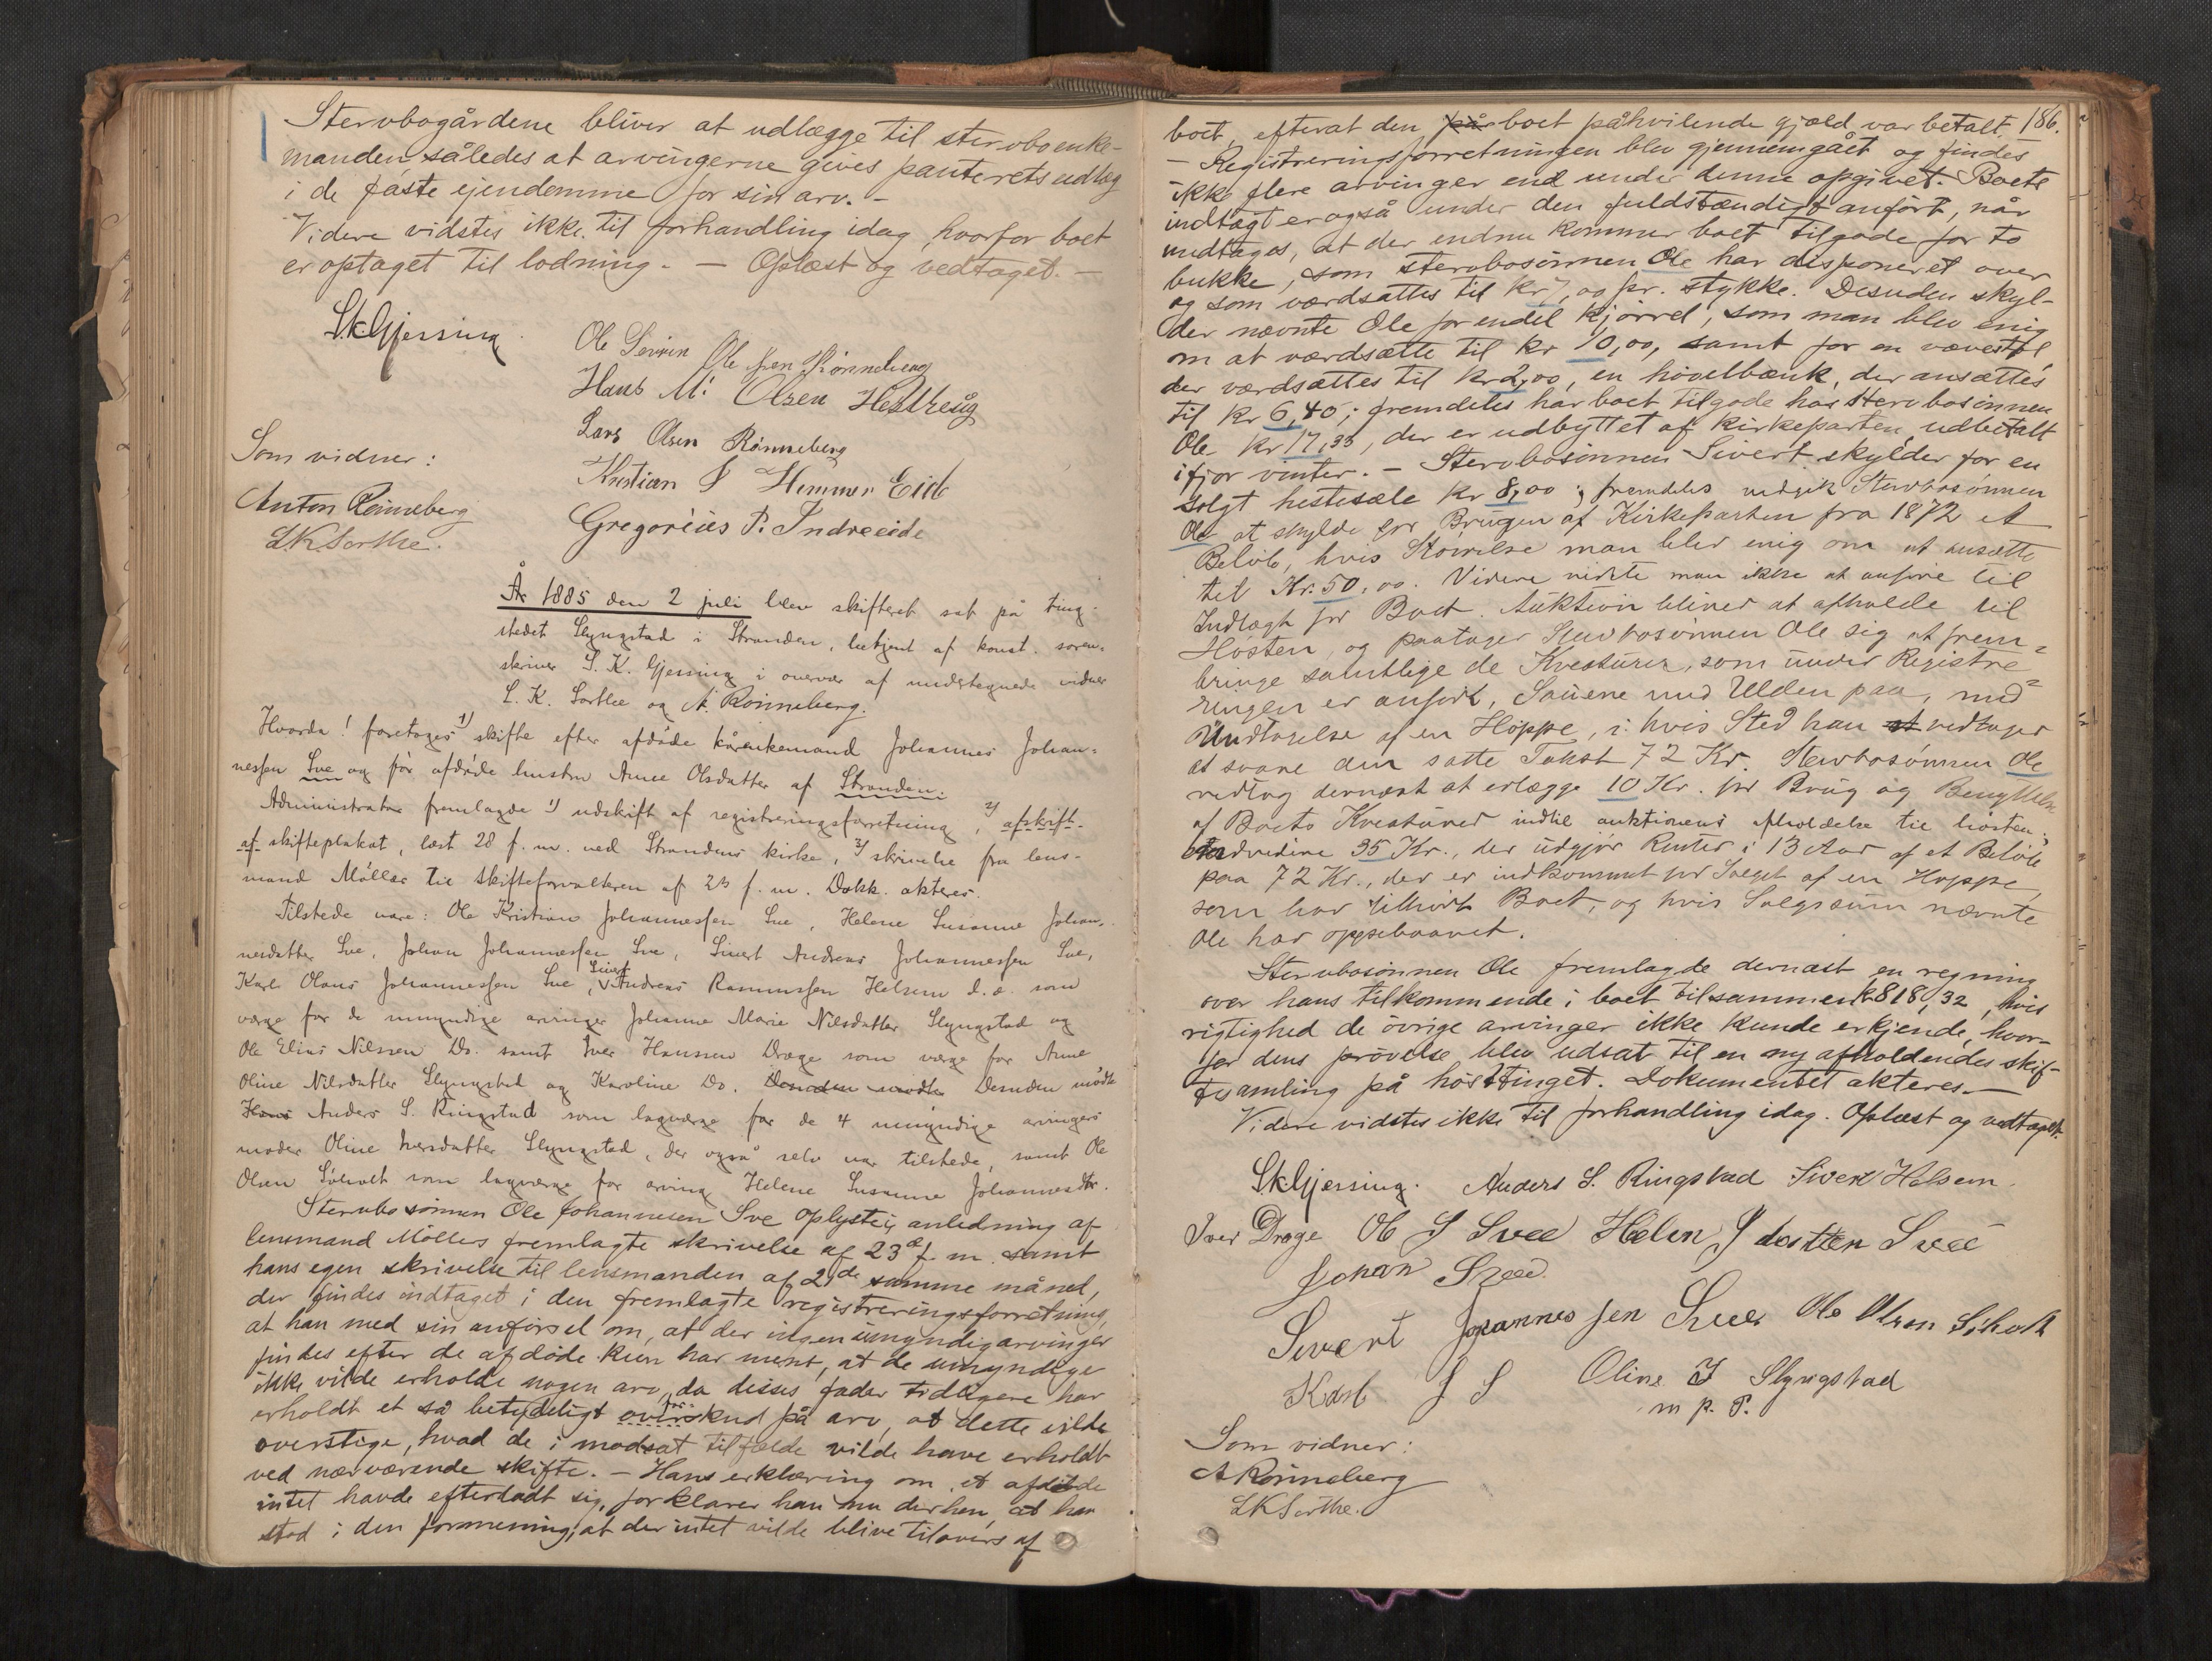 Stervbogårdene bliver at udlægge til stervboenke-
manden således at arvingerne gives panterets udlæg
i de faste ejendomme for sin arv. -
Videre vidstes ikke til forhandling idag hvorfor boet
er optaget til lodning. - Oplæst og vedtaget. -
SkGjessing.
Ole Ole Rønneberg
Hans M. Olsen
Lars Olsen Rønneberg
Som vidner:
Kristian Eide
Anton Rønneberg
Gregorius P. Indreeide
LKSorthe.
År 1885 den 2 juli blev skifteret sat på ting-
stedet Slyngstad i Stranden, betjent af konst. soren-
skriver S. K. Gjessing i overvær af undertegnede vidner
L. K. Sorthe og A. Rønneberg.
Hvorda! foretoges 1) skifte efter afdøde kårenkemand Johannes Johan-
nessen Sve og før afdøde hustru Anne Olsdatter af Stranden.
Administrator fremlagde 1) udskrift af registreringsforretning, 2) afskrift
af skifteplakat, læst 28 f. m. ved Strandens kirke, 3) skrivelse fra lens-
mand Møller til skifteforvalteren af 23 f. m. Dokk. akteres.
Tilstede vare: Ole Kristian Johannessen Sve, Helene Susanne Johan-
nesdatter Sve, Johan Johannessen Sve, Sivert Andreas Johannessen Sve,
Karl Olaus Johannessen Sve, Sivert Andreas Rasmussen Helsem d. æ. som
værge for de umyndige arvinger Johanne Marie Nilsdatter Slyngstad og
Ole Elias Nilssen Do. samt Iver Hanssen Drage som værge for Anne
Oline Nilsdatter Slyngstad og Karoline Do. Desuden mødte Desuden mødte
Hans Anders S. Ringstad som lagværge for de 4 umyndige arvingers
moder Oline Iversdatter Slyngstad, der også selv var tilstede, samt Ole
Olsen Søholt som lagværge for arving Helene Susanne Johannesdtr.
Stervbosønnen Ole Johannesen Sve oplyste i anledning af
lensmand Møllers fremlagte skrivelse af 23de f. m. samt
hans egen skrivelse til lensmanden af 21de samme måned,
der findes indtaget i den fremlagte registreringsforretning,
at han med sin anførsel om, at der ingen umyndig arvinger
findes efter de afdøde kun har ment, at de umyndige
ikke vilde erholde nogen arv, da disses fader tidligere har
erholdt et så betydeligt overskud på arv, at dette vilde
overstige, hvad de i modsat tilfælde vilde have erholdt
ved nærværende skifte. - Hans erklæring om, at afdøde
intet havde efterladt sig, forklarer han nu derhen, at han
stod i den formening, at der intet vilde blive tilovers af
186.
boet, efterat den på boet påhvilende gjæld var betalt.
- Registreringsforretningen blev gjennemgået og findes
ikke flere arvinger end under denne opgivet. Boets
indtægt er også under den fuldstændigt anført, når
undtages, at der endnu kommer boet tilgode for to
bukke, som stervbosønnen Ole har disponeret over
og som værdsattes til kr 7,00 pr. stykke. Desuden skyl-
der nævnte Ole for endel kjørrel, som man blev enig
om at værdsætte til kr 10,00, samt for en vævestol
der værdsættes til kr 2,00, en høvelbænk, der ansættes
til kr 6,40; fremdeles har boet tilgode hos stervbosønnen
Ole kr 17,33, der er udbyttet af kirkeparten, udbetalt
ifjor vinter. - Stervbosønnen Sivert skylder for en
solgt hestesæle kr 8,00; fremdeles vedgik Stervbosønnen
Ole at skylde for Brugen af Kirkeparten fra 1872 et
Beløb, hvis Størrelse man blev enig om at ansætte
til Kr. 50,00. Videre vidste man ikke at anføre til
Indtægt for Boet. Auktion bliver at afholde til
Høsten, og paatager Stervbosønnen Ole sig at frem-
bringe samtlige de Kreaturer, som under Registre-
ringen er anført, Sauene med Ulden paa, med
Undtagelse af en Hoppe, i hvis Sted han at vedtager
at svare den satte Takst 72 Kr. Stervbosønnen Ole
vedtog dernæst at erlægge 10 Kr. for Brug og Benyttelse
af Boets Kreaturer indtil auktionens afholdelse til høsten;
endvidere 35 Kr., der udgjør Renter i 13 Aar af et Beløb
paa 72 Kr., der er indkommet for Salget af en Hoppe,
som har tilhørt Boet, og hvis Salgssum nævnte
Ole har oppebaaret.
Stervbosønnen Ole fremlagde dernæst en regning
over hans tilkommende i boet tilsammen kr 818,32, hvis
rigtighed de øvrige arvinger ikke kunde erkjende, hvor-
for dens prøvelse blev udsat til en ny afholdendes skif-
tesamling på høsttinget. Dokumentet akteres. -
Videre vidstes ikke til forhandling idag. Oplæst og vedtaget.
SkGjessing. Anders S. Ringstad Sivert Helsem.
Iver Drage Ole J Svee Helen J dostten Svee
Johan Svee.
Sivert Johannessen Svee Ole Olsen Søholt
Karl J S Oline I Slyngstad
m. p. P.
Som vidner:
A Rønneberg
LKSorthe.